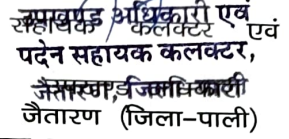 उपखण्ड अधिकारी एवं
सहायक कलक्टर एवं
पदेन सहायक कलक्टर,
जैतारण (जिला-पाली)